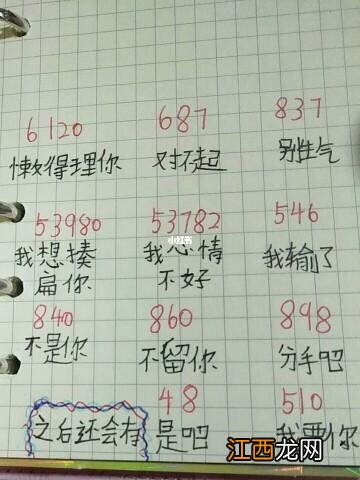 6120
687
837
懒得理你
对不起
别生气
53980
53782
546
我想揍
扁你
我心情
不好
我输了
小红书
840
860
898
不是你
不留你
分手吧
48
510
之后还会有
是吧
我要你
江西龙网